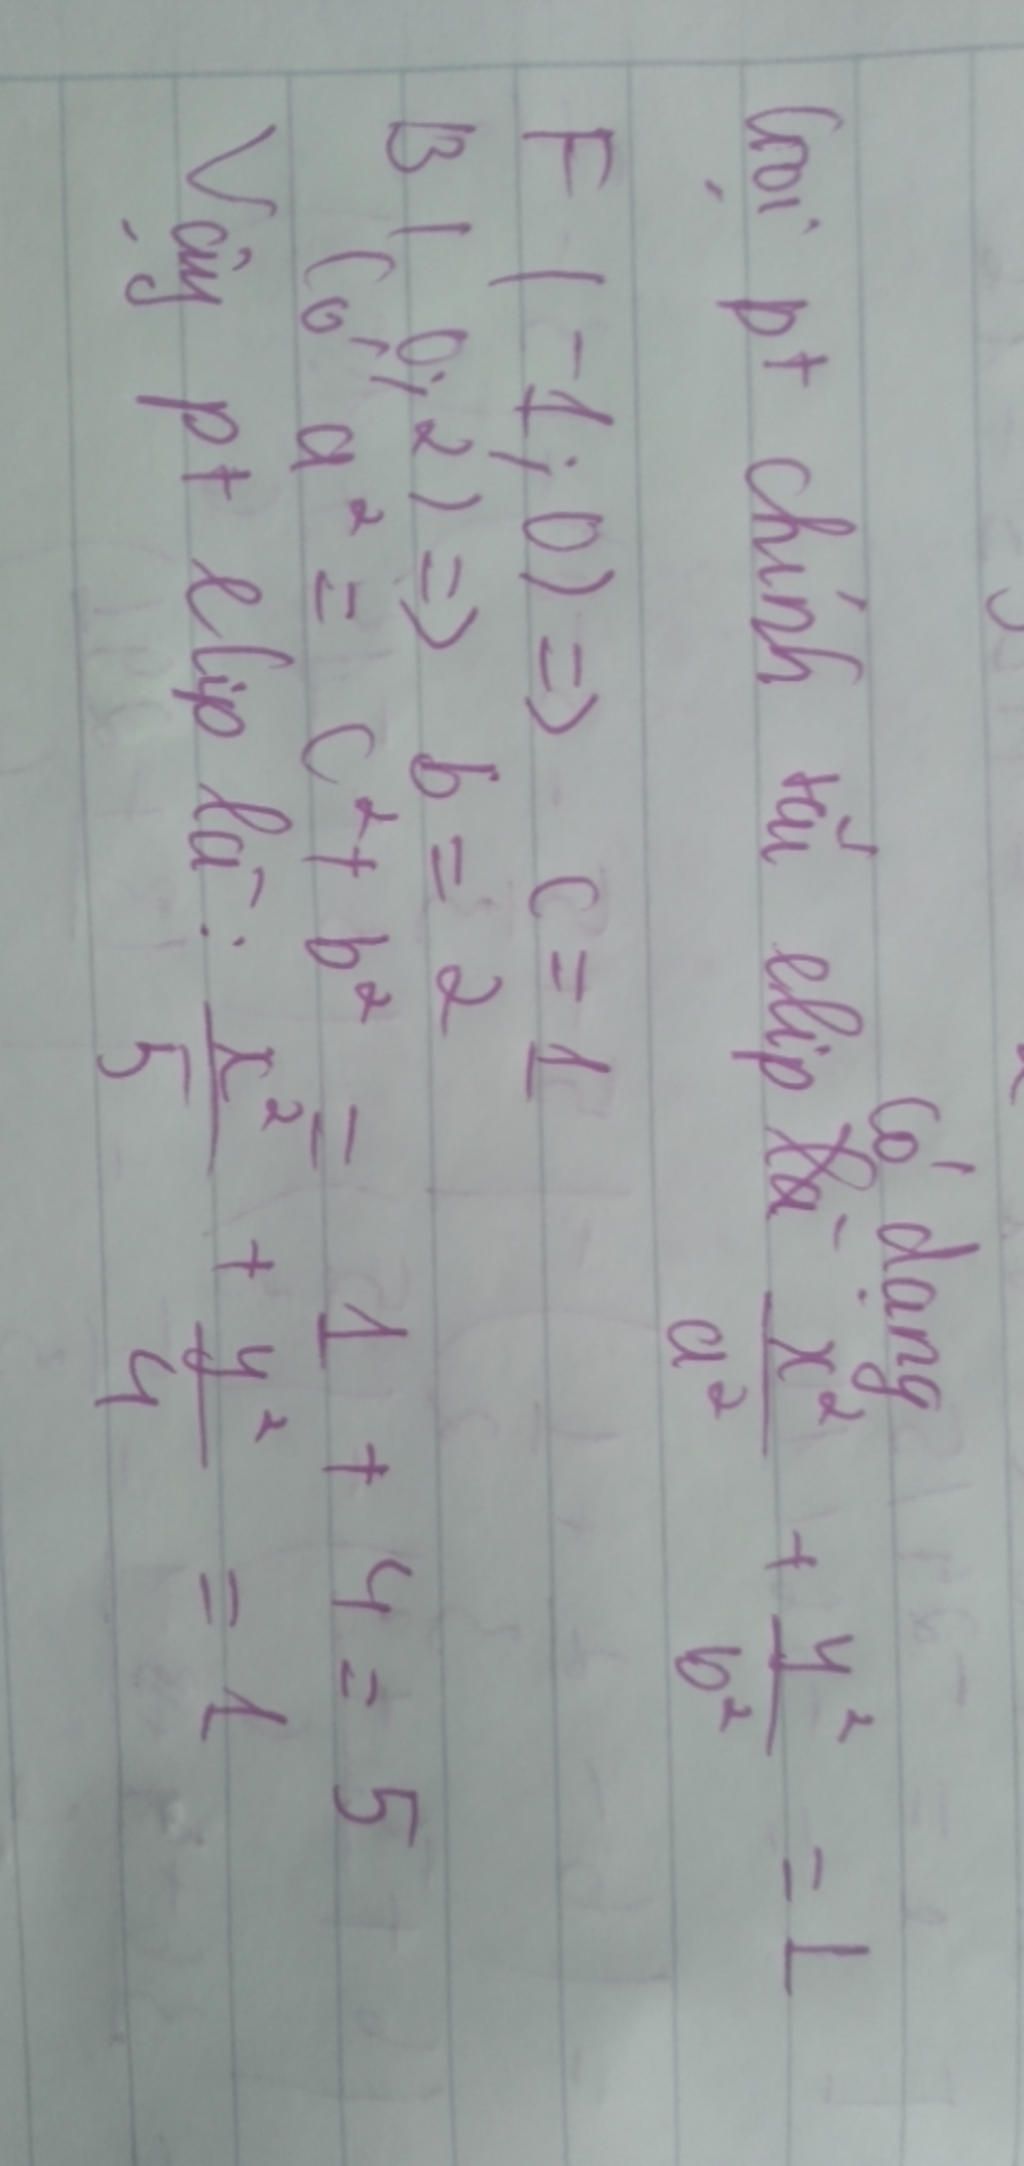 có dạng
Gọi pt chính tắc elip là x²/a² + y²/b² = 1
F (-1; 0) => c = 1
B ( 0; 2) => b = 2
Có a² = c² + b² = 1 + 4 = 5
Vậy pt elip là : x²/5 + y²/4 = 1